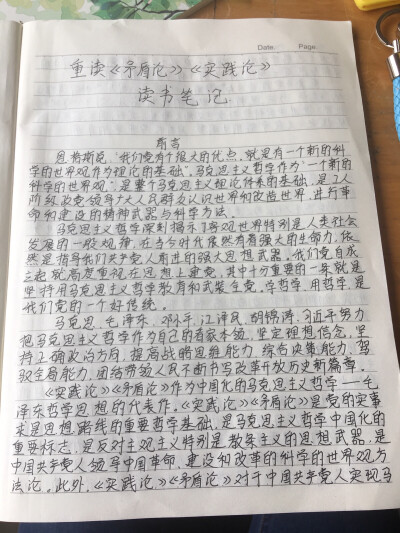 Date. Page.
重读《矛盾论》《实践论》
读书笔记
前言
恩格斯说"我们党有个很大的优点,就是有一个新的科
学的世界观作为理论的基础"。马克思主义哲学作为"一个新的
科学的世界观",是整个马克思主义理论体系的基础,是工人
阶级政党领导广大人民群众认识世界和改造世界,进行革
命和建设的精神武器与科学方法。
马克思主义哲学深刻揭示了客观世界特别是人类社会
发展的一般规律,在当今时代依然有着强大的生命力,依
然是指导我们共产党人前进的强大思想武器。我们党自成
立起就高度重视在思想上建党,其中十分重要的一条就是
坚持用马克思主义哲学教育和武装全党。学哲学、用哲学,是
我们党的一个好传统。
马克思、毛泽东、邓小平、江泽民、胡锦涛、习近平努力
把马克思主义哲学作为自己的看家本领,坚定理想信念,坚
持正确政治方向,提高战略思维能力、综合决策能力、驾
驭全局能力,团结带领人民不断书写改革开放历史新篇章。
《实践论》《矛盾论》作为中国化的马克思主义哲学——毛
泽东哲学思想的代表作。《实践论》《矛盾论》是党的实事
求是思想路线的重要哲学基础,是马克思主义哲学中国化的
重要标志,是反对主观主义特别是教条主义的思想武器,是
中国共产党人领导中国革命、建设和改革的科学的世界观方
法论。此外,《实践论》《矛盾论》对于中国共产党人实现马